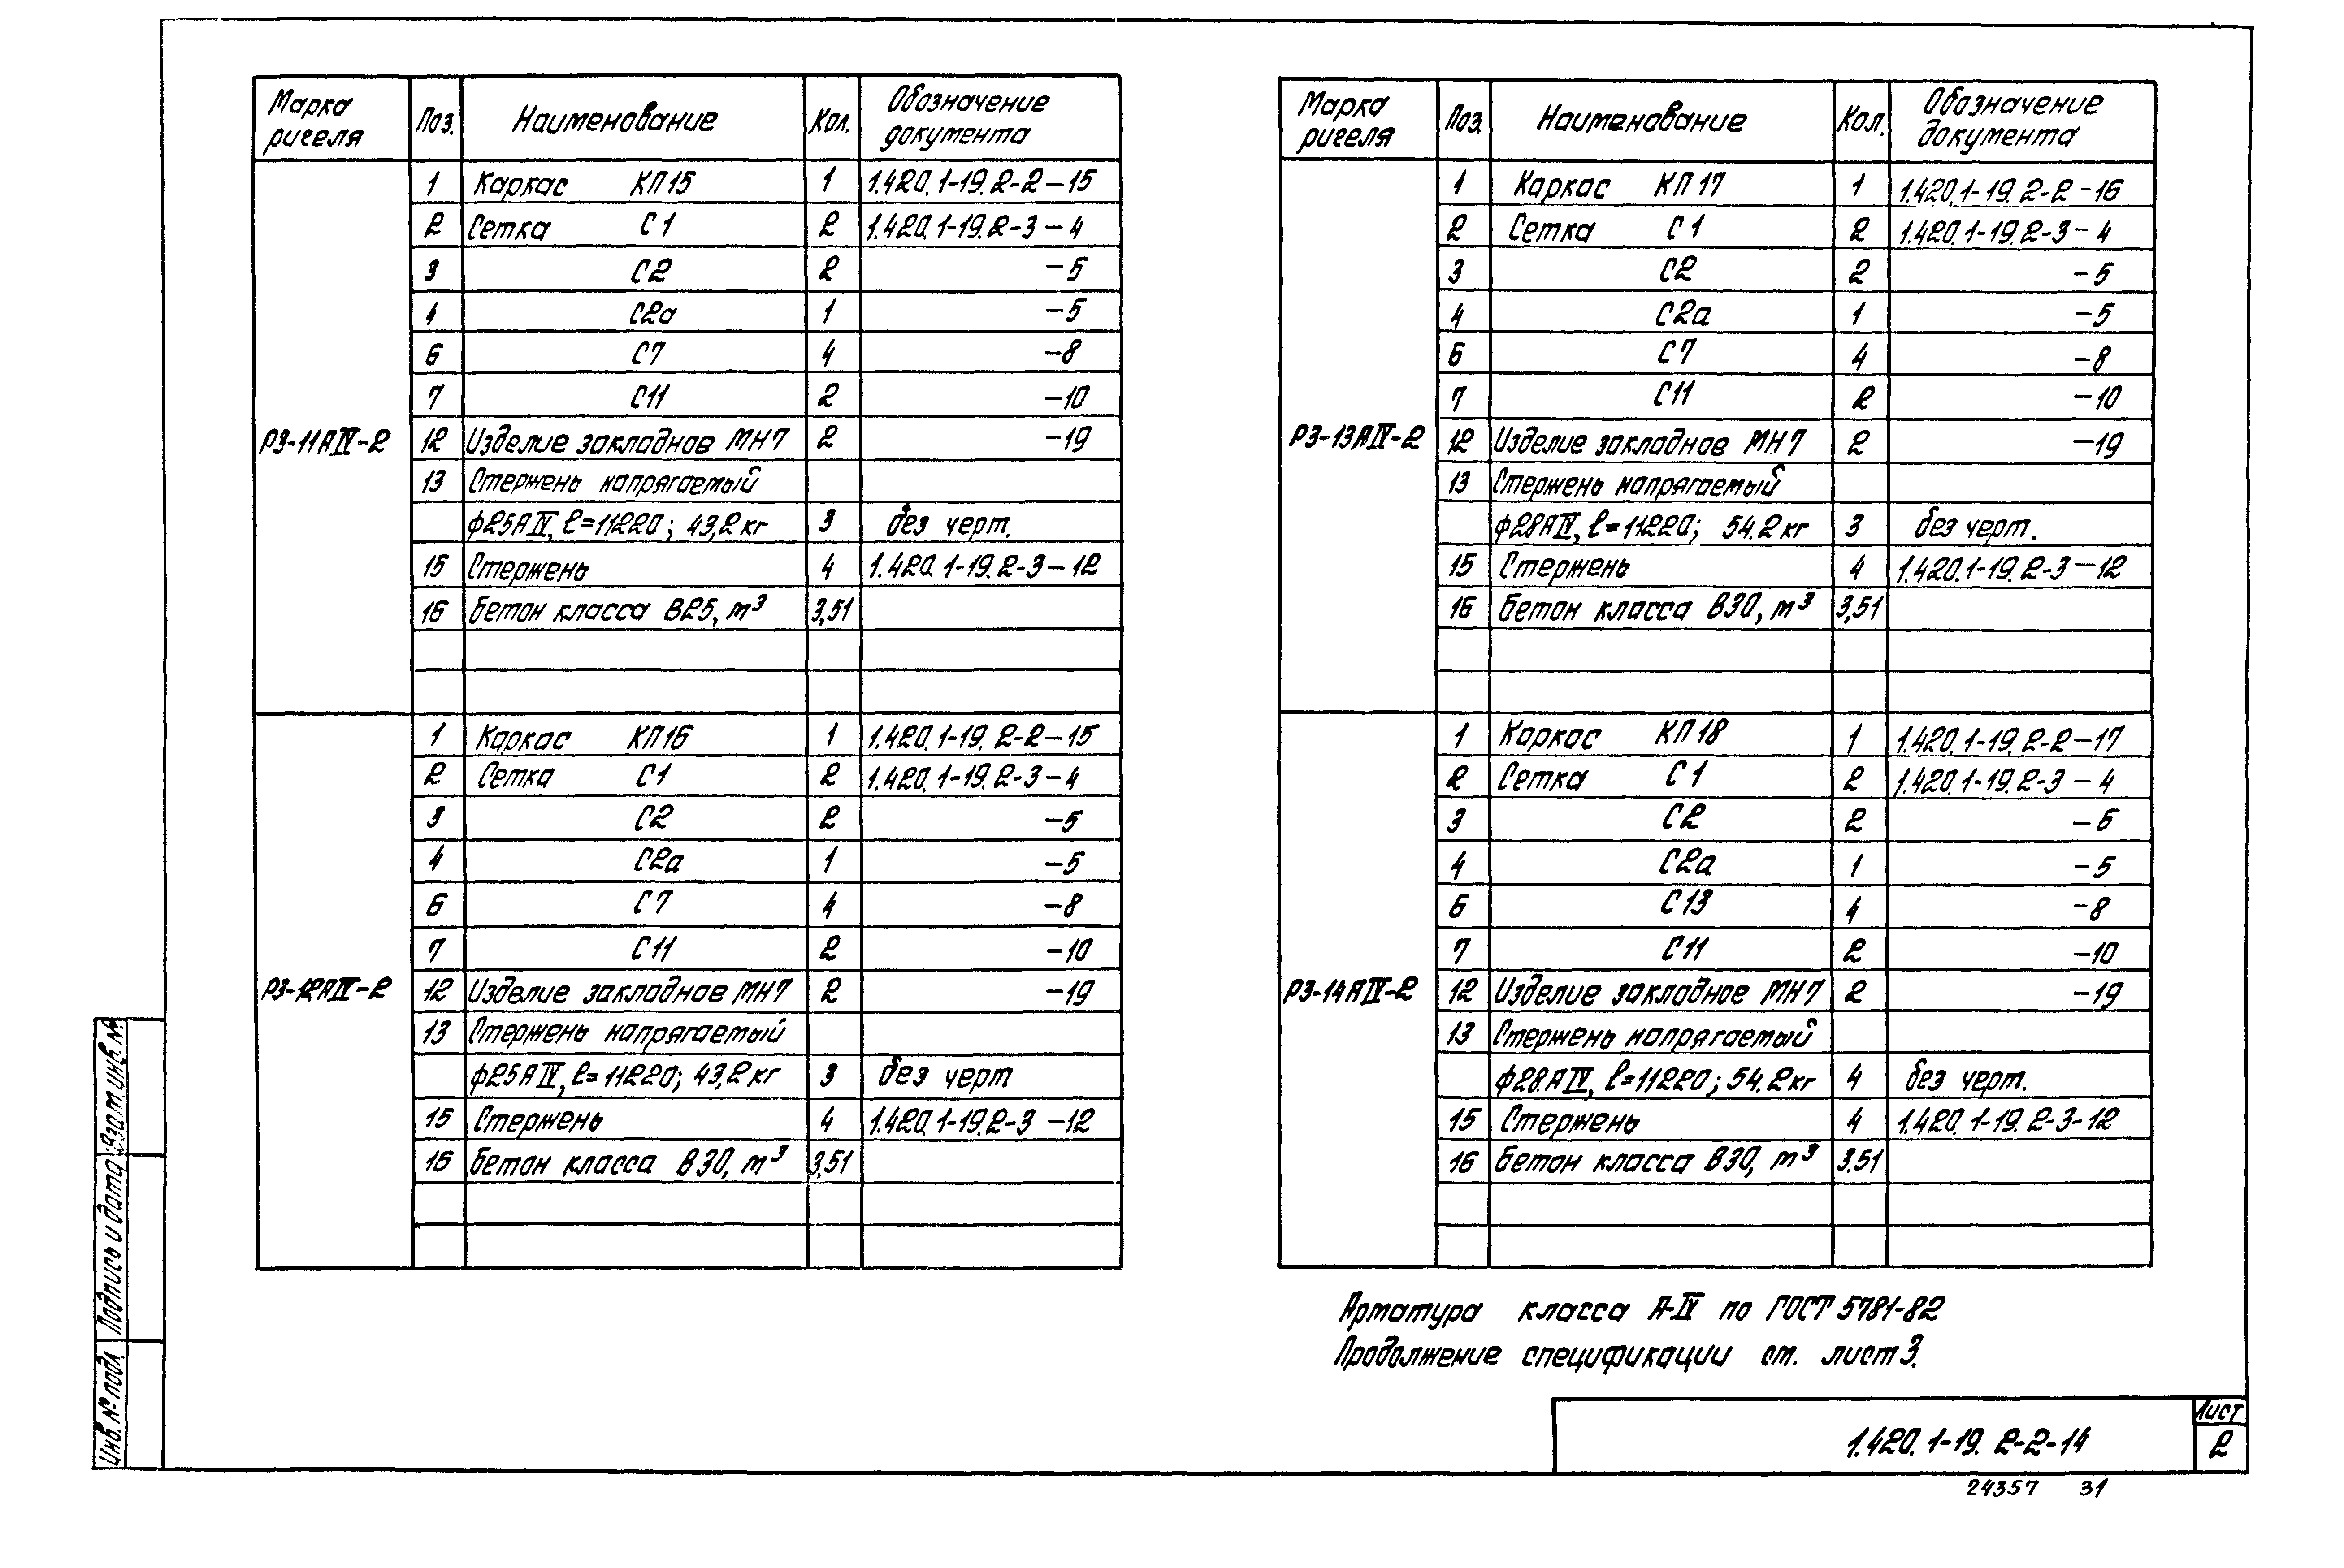 Марка ригеля Поз. Наименование Кол. Обозначение документа
РЗ-11АIV-2
1 Каркас КП15 1 1.420.1-19.2-2-15
2 Сетка С1 2 1.420.1-19.2-3-4
3 С2 2 -5
4 С2а 1 -5
6 С7 4 -8
7 С11 2 -10
12 Изделие закладное МН7 2 -19
13 Стержень напрягаемый
ф25АIV, ℓ=11220; 43,2кг 3 без черт.
15 Стержень 4 1.420.1-19.2-3-12
16 Бетон класса В25, м³ 3,51
РЗ-12АIV-2
1 Каркас КП16 1 1.420.1-19.2-2-15
2 Сетка С1 2 1.420.1-19.2-3-4
3 С2 2 -5
4 С2а 1 -5
6 С7 4 -8
7 С11 2 -10
12 Изделие закладное МН7 2 -19
13 Стержень напрягаемый
ф25АIV, ℓ=11220; 43,2кг 3 без черт
15 Стержень 4 1.420.1-19.2-3-12
16 Бетон класса В30, м³ 3,51
Марка ригеля Поз. Наименование Кол. Обозначение документа
РЗ-13АIV-2
1 Каркас КП17 1 1.420.1-19.2-2-16
2 Сетка С1 2 1.420.1-19.2-3-4
3 С2 2 -5
4 С2а 1 -5
6 С7 4 -8
7 С11 2 -10
12 Изделие закладное МН7 2 -19
13 Стержень напрягаемый
ф28АIV, ℓ=11220; 54.2кг 3 без черт.
15 Стержень 4 1.420.1-19.2-3-12
16 Бетон класса В30, м³ 3,51
РЗ-14АIV-2
1 Каркас КП18 1 1.420.1-19.2-2-17
2 Сетка С1 2 1.420.1-19.2-3-4
3 С2 2 -5
4 С2а 1 -5
6 С13 4 -8
7 С11 2 -10
12 Изделие закладное МН7 2 -19
13 Стержень напрягаемый
ф28АIV, ℓ=11220; 54.2кг 4 без черт.
15 Стержень 4 1.420.1-19.2-3-12
16 Бетон класса В30, м³ 3.51
Арматура класса А-IV по ГОСТ 5781-82
Продолжение спецификации см. лист 3.
Инв. № подл. Подпись и дата Взам. инв. №
1.420.1-19.2-2-14
Лист
2
24357 31